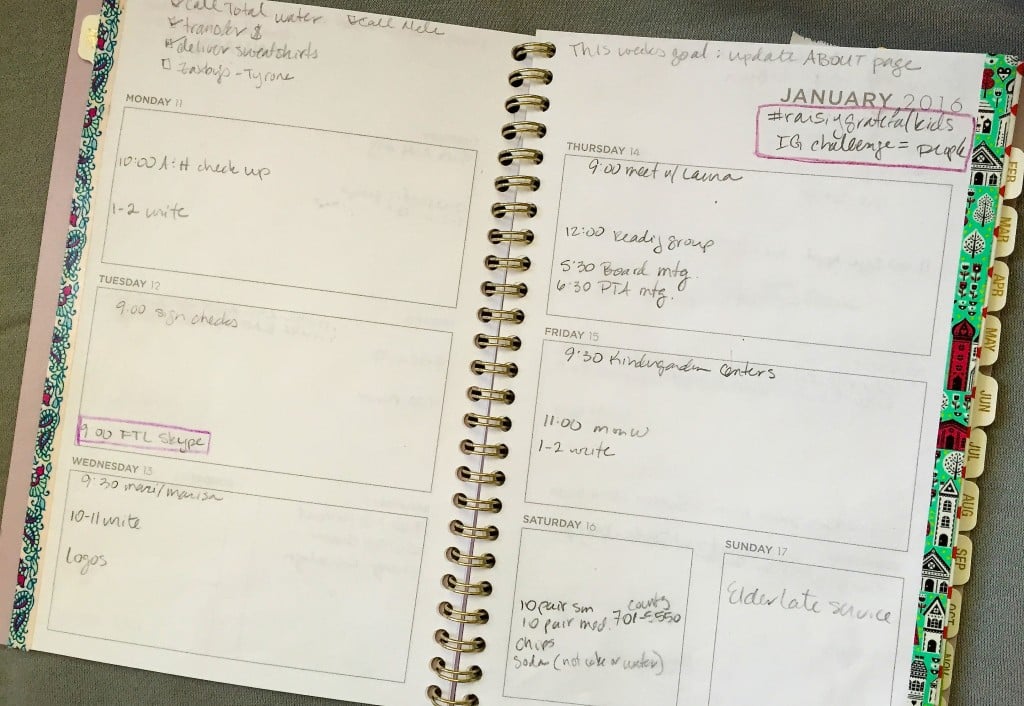 call Total water ☑ call Nele
☑ transfer $
deliver sweatshirts
☐ Zaxbys - Tyrone
MONDAY 11
10:00 check up
1-2 write
TUESDAY 12
9:00 sign checks
9:00 FTL Skype
WEDNESDAY 13
9:30 mari/marisa
10-11 write
Logos
This weeks goal: update ABOUT page
JANUARY 2016
#raisingratefulkids
IG challenge = people
THURSDAY 14
9:00 meet w/ Laura
12:00 Reading group
5:30 Board mtg.
6:30 PTA mtg.
FRIDAY 15
9:30 Kindergarden centers
11:00
1-2 write
SATURDAY 16
10 pair sm
10 pair med. 701-5550
chips
Soda (not coke or water)
SUNDAY 17
Elder late service
FEB
MAR
APR
MAY
JUN
JUL
AUG
SEP
OCT
NOV